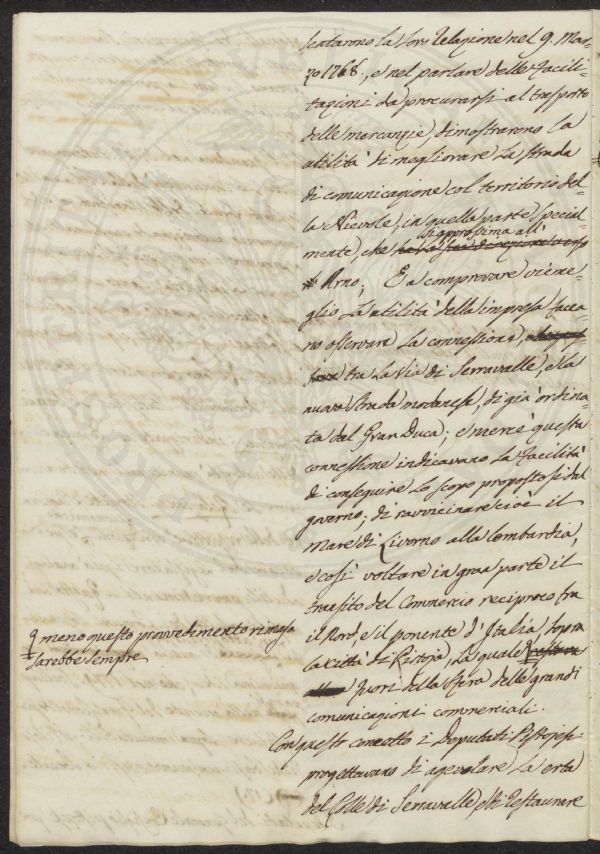 sentarono la loro Relazione nel 9. Mar=
zo 1768., e nel parlare delle facili=
tazioni da procurarsi al trasporto
delle mercanzie, dimostrarono la
utilità di megliorare la strada
di comunicazione col territorio del=
la Nievole, in quella parte special=
si approssima all'
mente, che
Arno; E a comprovare viene=
glio la utilità della impresa facea=
no osservare la connessione,
tra la Via di Serravalle, e la
nuova strada modanese, di già ordina=
ta dal Gran Duca; e mercè questa
connessione indicavano la facilità
di conseguire lo scopo propostosi dal
governo; di ravvicinare cioè il
Mare di Livorno alla lombardia,
e così voltare in gran parte il
transito del Commercio reciproco fra
il Nord, e il ponente d'Italia, sopra
la città di Pistoja, la quale
fuori della sfera delle grandi
comunicazioni commerciali.
Con questo concetto i Deputati Pistojesi
progettavano di agevolare la erta
del Colle di Serravalle, e di restaurare
meno questo provvedimento rimasa
sarebbe sempre